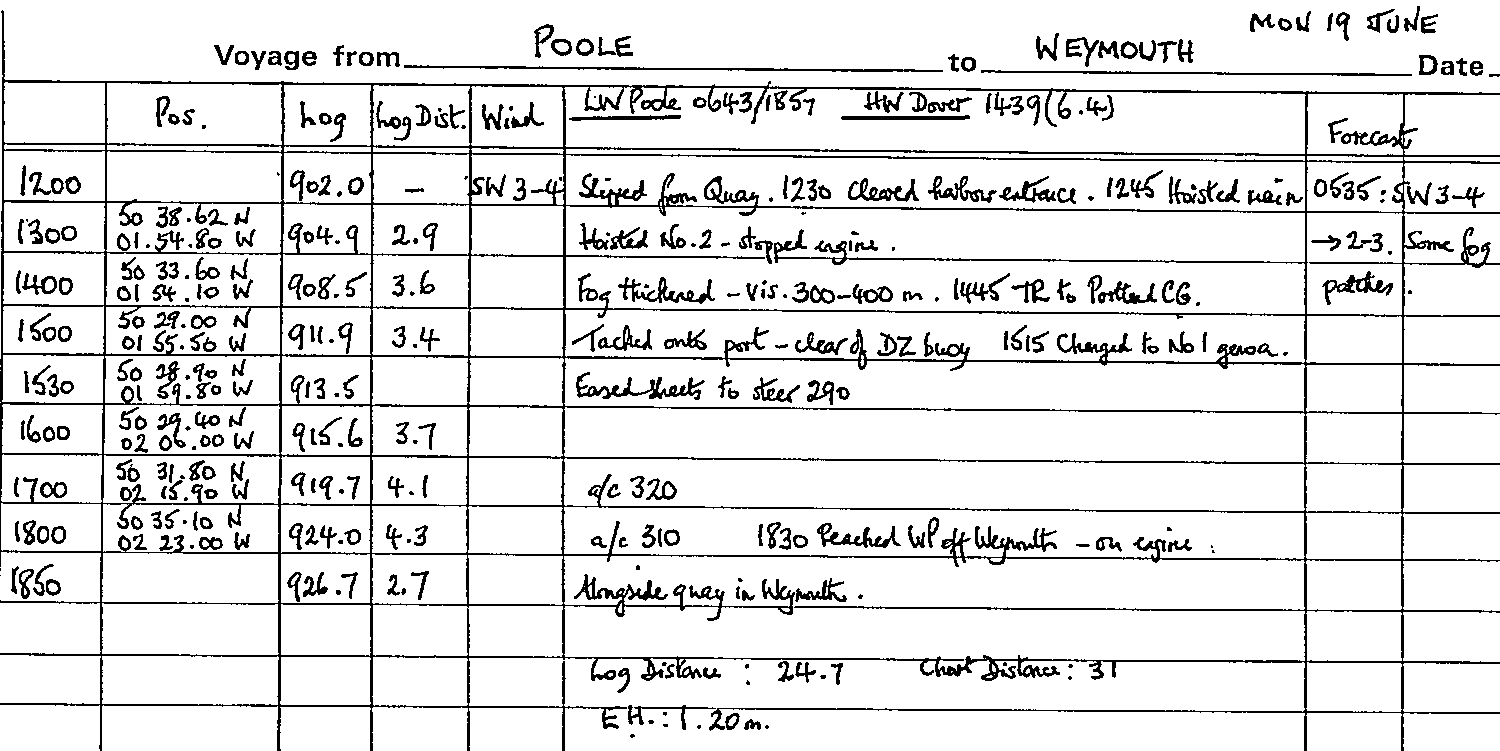 MON 19 JUNE
Voyage from POOLE to WEYMOUTH Date
Pos. Log Log Dist. Wind LW Poole 0643/1857 HW Dover 1439(6.4) Forecast
1200 902.0 – SW 3-4 Slipped from Quay. 1230 Cleared harbour entrance. 1245 Hoisted main 0535: SW 3-4
1300 50 38.62 N 904.9 2.9 Hoisted No.2 – stopped engine. → 2-3. Some fog
01.54.80 W
1400 50 33.60 N 908.5 3.6 Fog thickened – Vis. 300-400 m. 1445 TR to Portland CG. patches.
01 54.10 W
1500 50 29.00 N 911.9 3.4 Tacked onto port – clear of DZ buoy 1515 Changed to No 1 genoa.
01 55.50 W
1530 50 28.90 N 913.5 Eased sheets to steer 290
01 59.80 W
1600 50 29.40 N 915.6 3.7
02 06.00 W
1700 50 31.80 N 919.7 4.1 a/c 320
02 15.90 W
1800 50 35.10 N 924.0 4.3 a/c 310 1830 Reached WP off Weymouth – on engine.
02 23.00 W
1850 926.7 2.7 Alongside quay in Weymouth.
Log Distance : 24.7 Chart Distance: 31
E.H.: 1.20m.